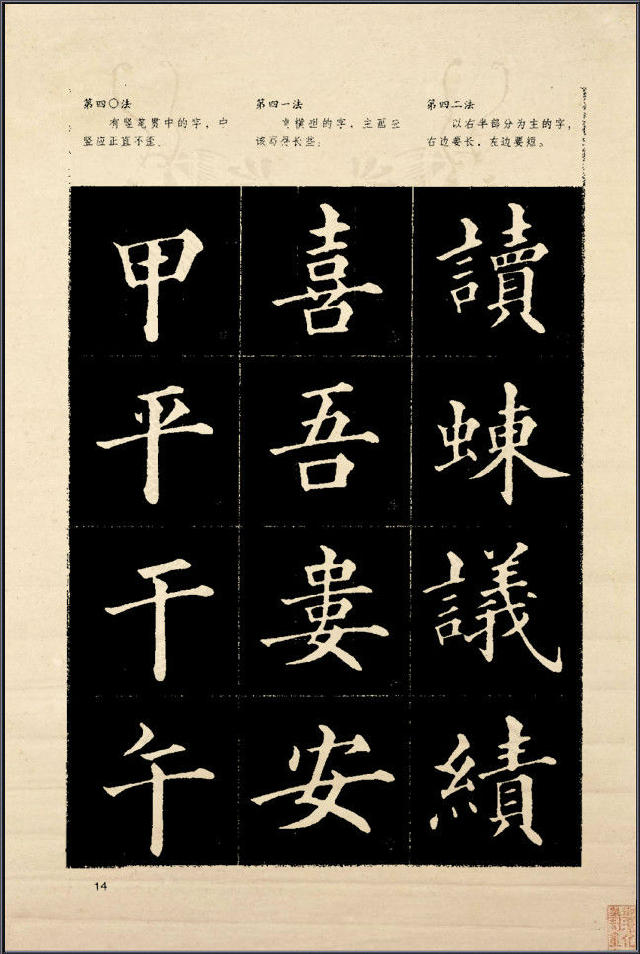 第四〇法
有竖笔贯中的字，中
竖应正直不歪。
第四一法
横型的字，主画应
该写得长些。
第四二法
以右半部分为主的字，
右边要长，左边要短。
甲 喜 讀
平 吾 蝀
干 婁 議
午 安 績
14